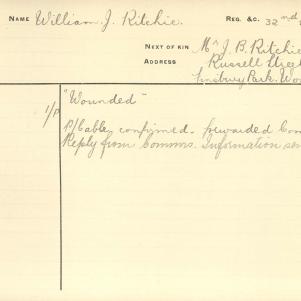 NAME William J. Ritchie. REG. &C. 32nd
NEXT OF KIN Mr J. B. Ritchie
ADDRESS Russell Street
Finsbury Park. Wo
"Wounded"
1/P P/Cable, confirmed. forwarded Com
Reply from Comms. Information sen